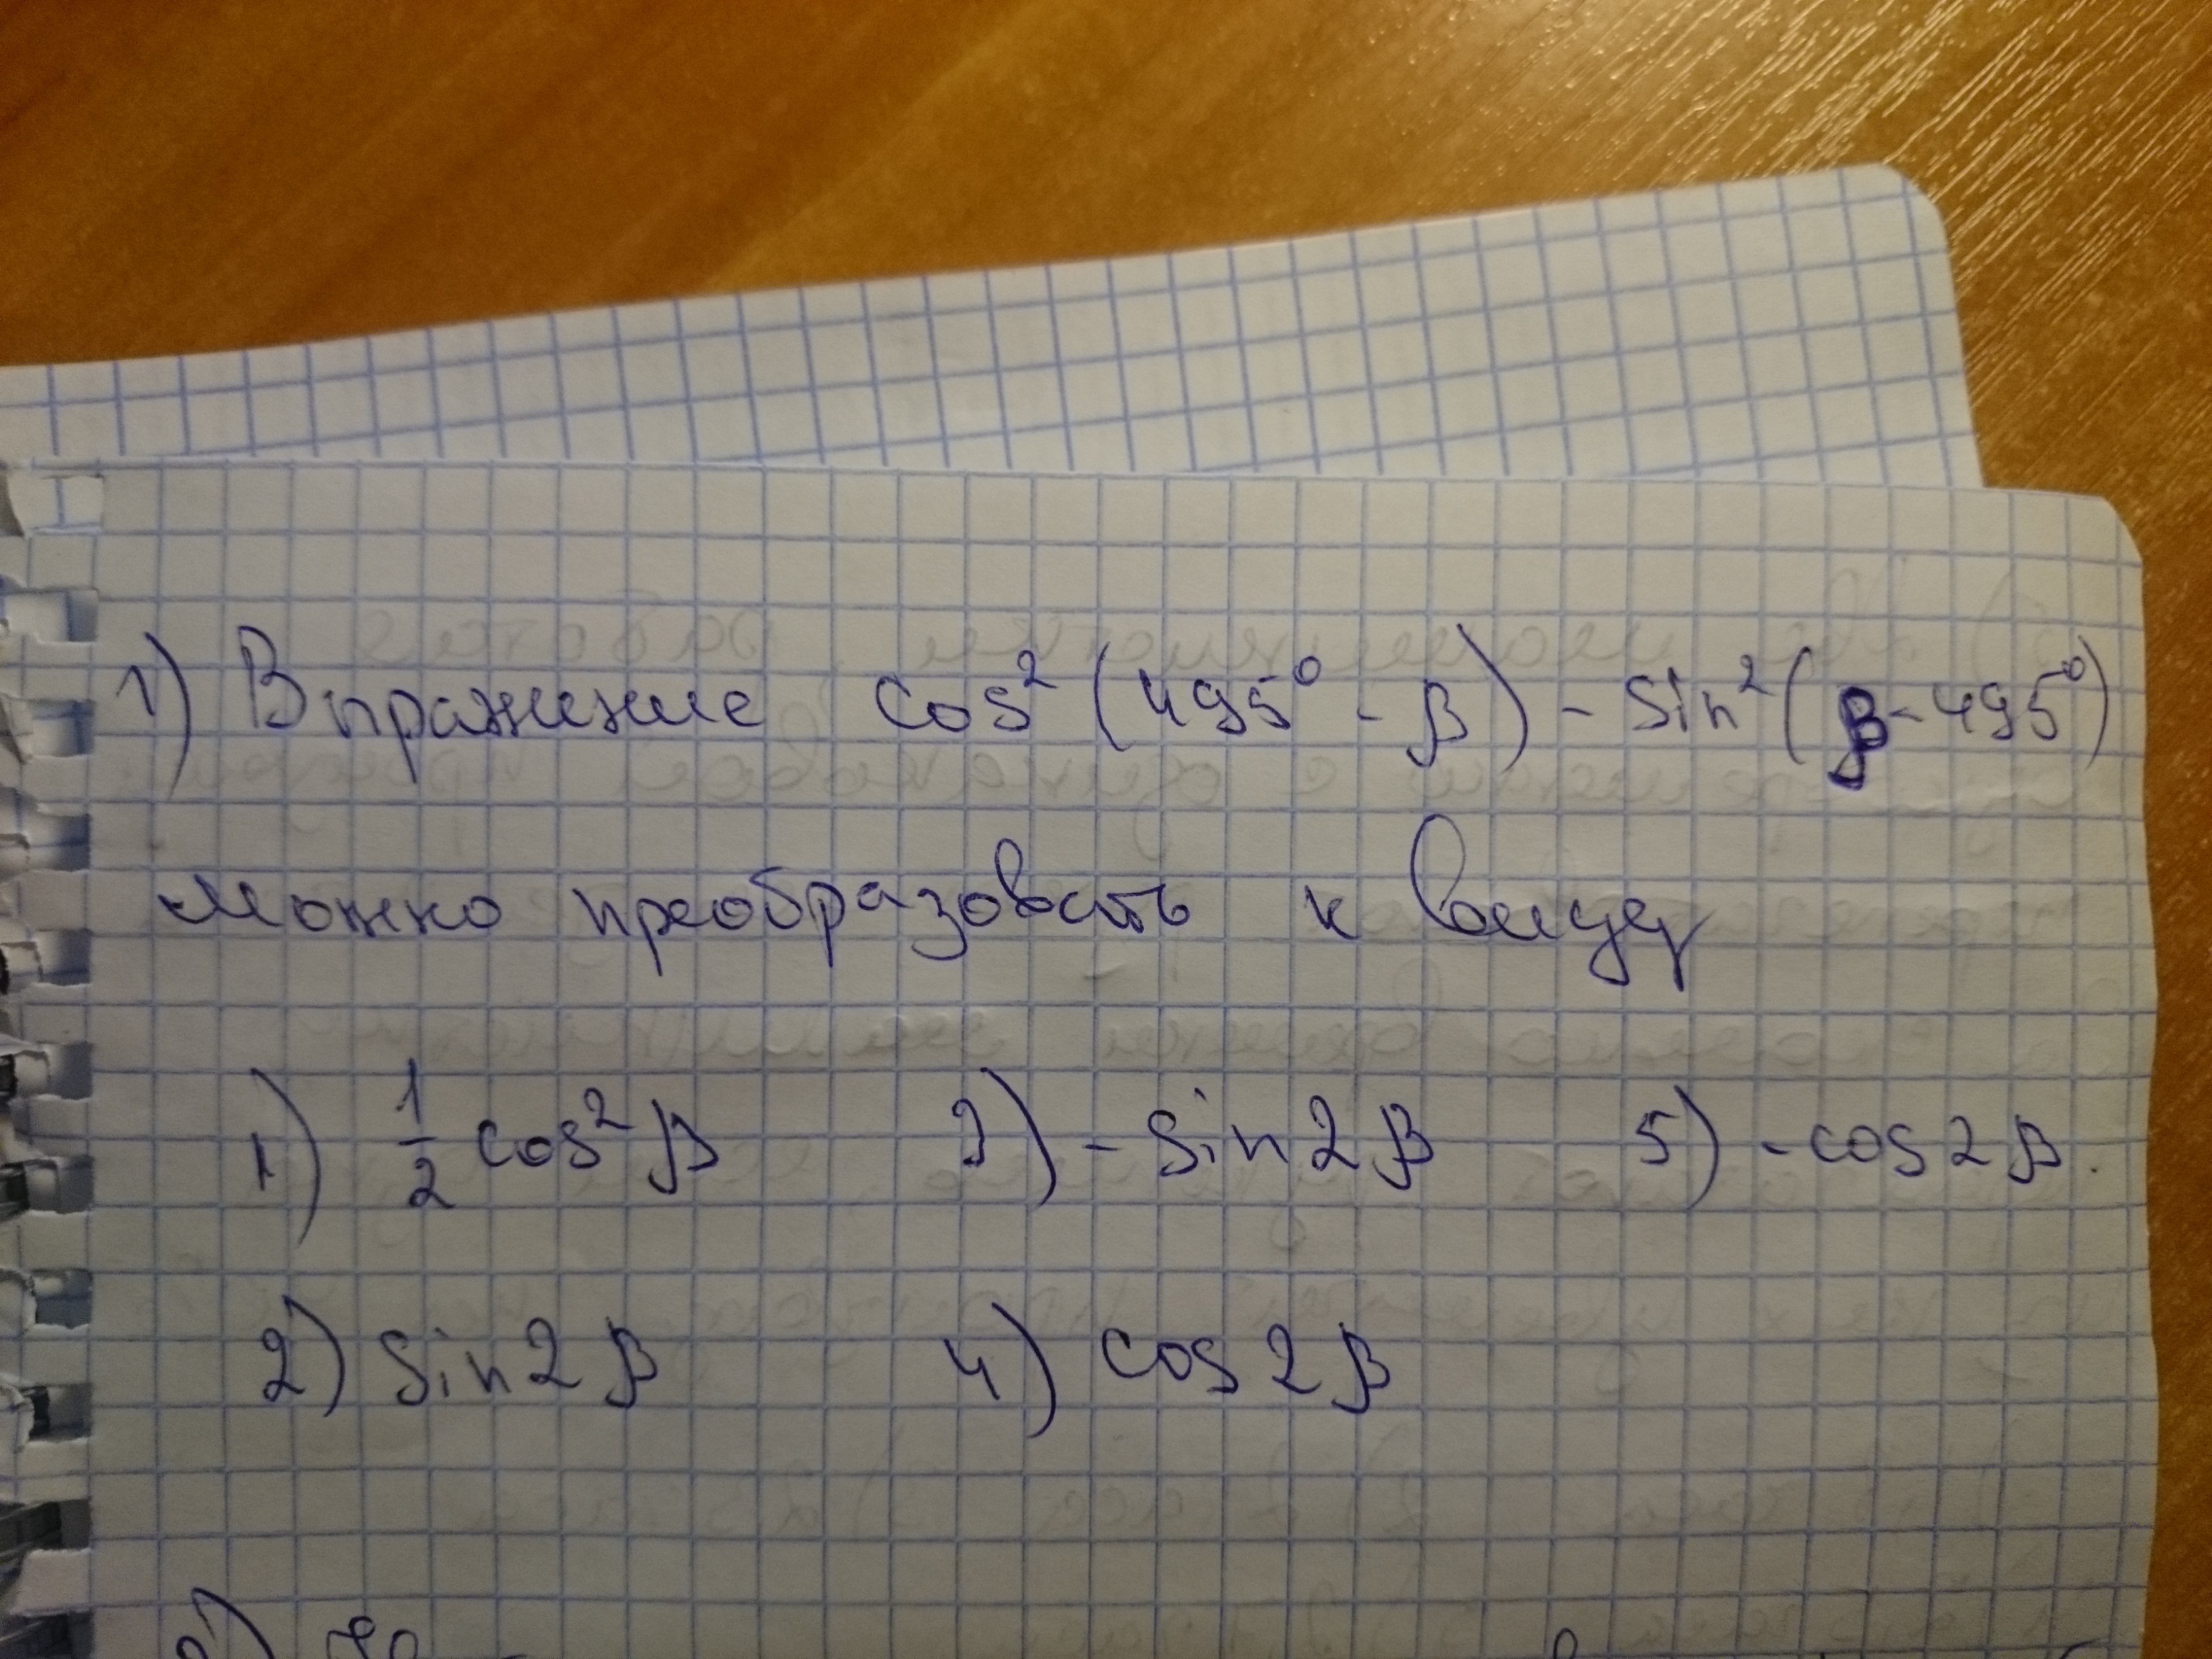 1) Выражение cos² (495° - β) - sin² (β - 495°)
можно преобразовать к виду
1) 1/2 cos² β 3) - sin 2 β 5) - cos 2 β.
2) sin 2 β 4) cos 2 β